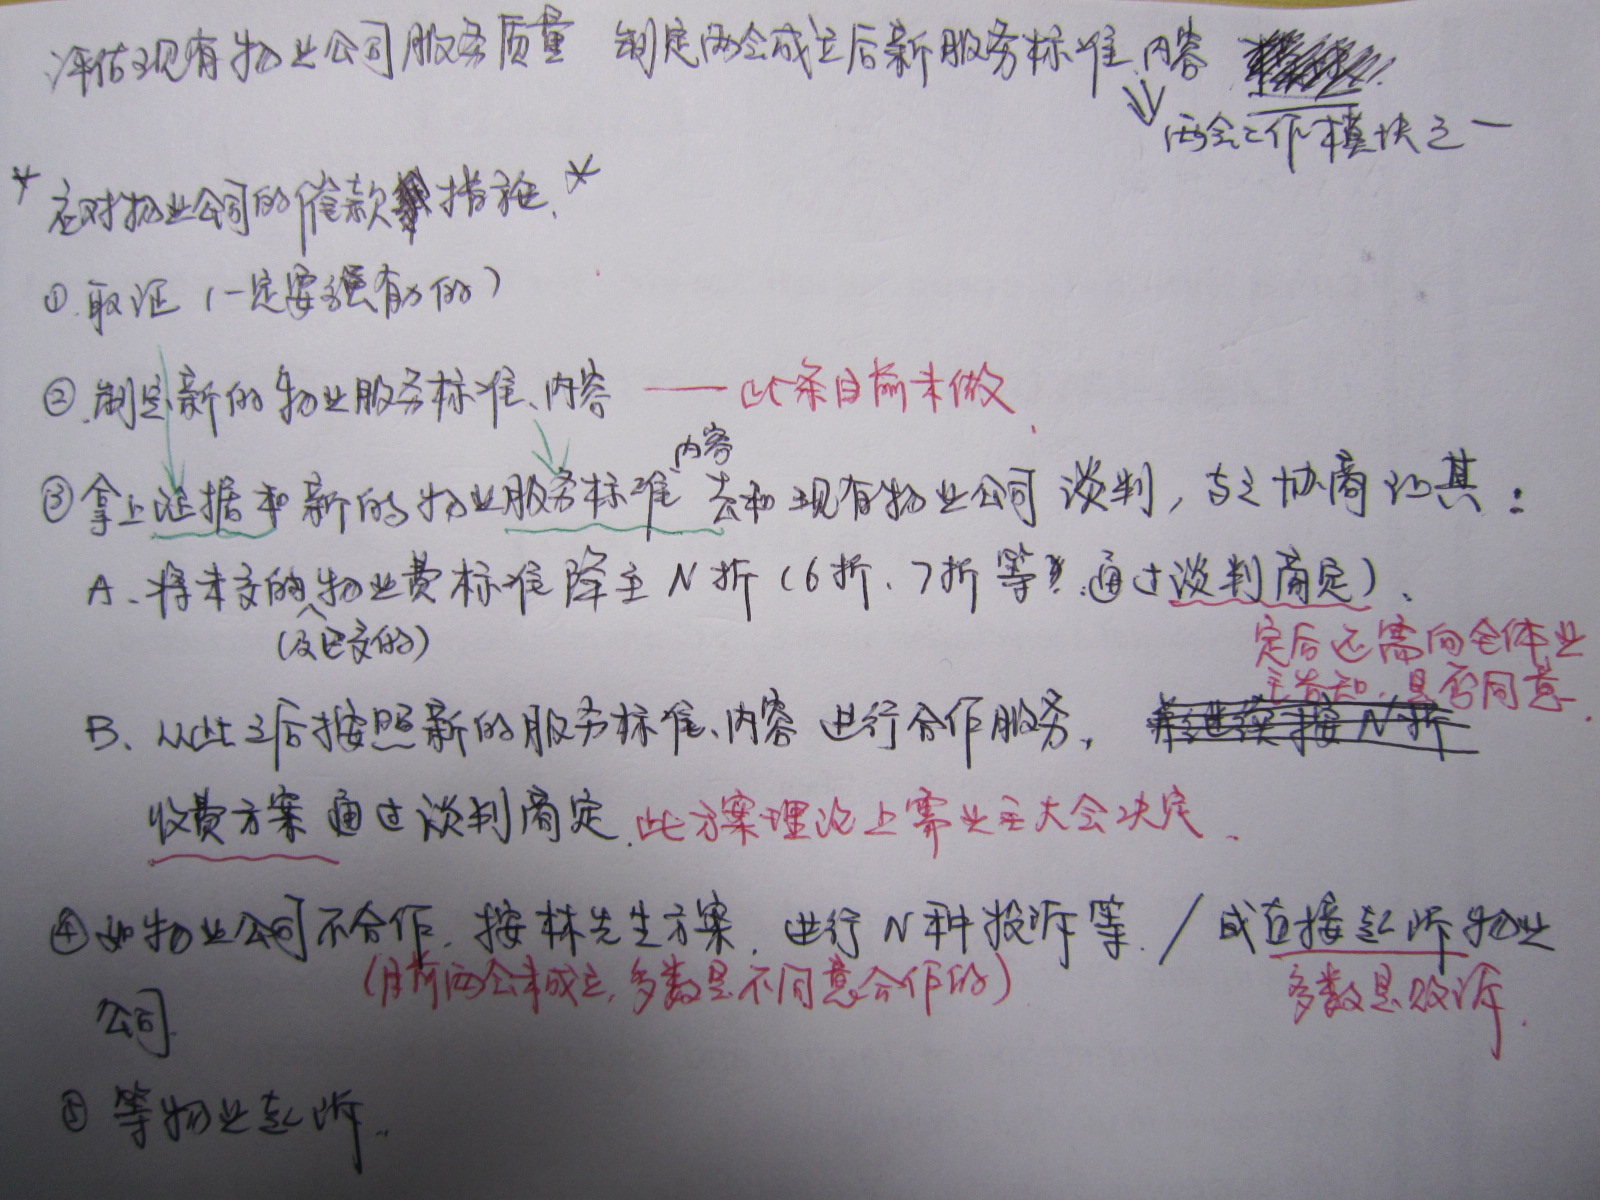 评估现有物业公司服务质量 制定两会成立后新服务标准、内容
两会工作模块之一
* 应对物业公司的催款措施. *
① 取证 (一定要强有力的)
② 制定新的物业服务标准、内容 —— 此条目前未做.
内容
③ 拿上证据和新的物业服务标准、去和现有物业公司谈判, 与之协商让其:
A、将未交的物业费标准降至N折 (6折、7折等. 通过谈判商定)、
(及已交的)
定后还需向全体业
主告知, 是否同意.
B、从此之后按照新的服务标准、内容 进行合作服务, 并继续按N折
收费方案 通过谈判商定. 此方案理论上需业主大会决定.
④ 如物业公司不合作. 按林先生方案. 进行N种投诉等. / 或直接起诉物业
(目前两会未成立, 多数是不同意合作的)
多数是败诉.
公司.
⑤ 等物业起诉..